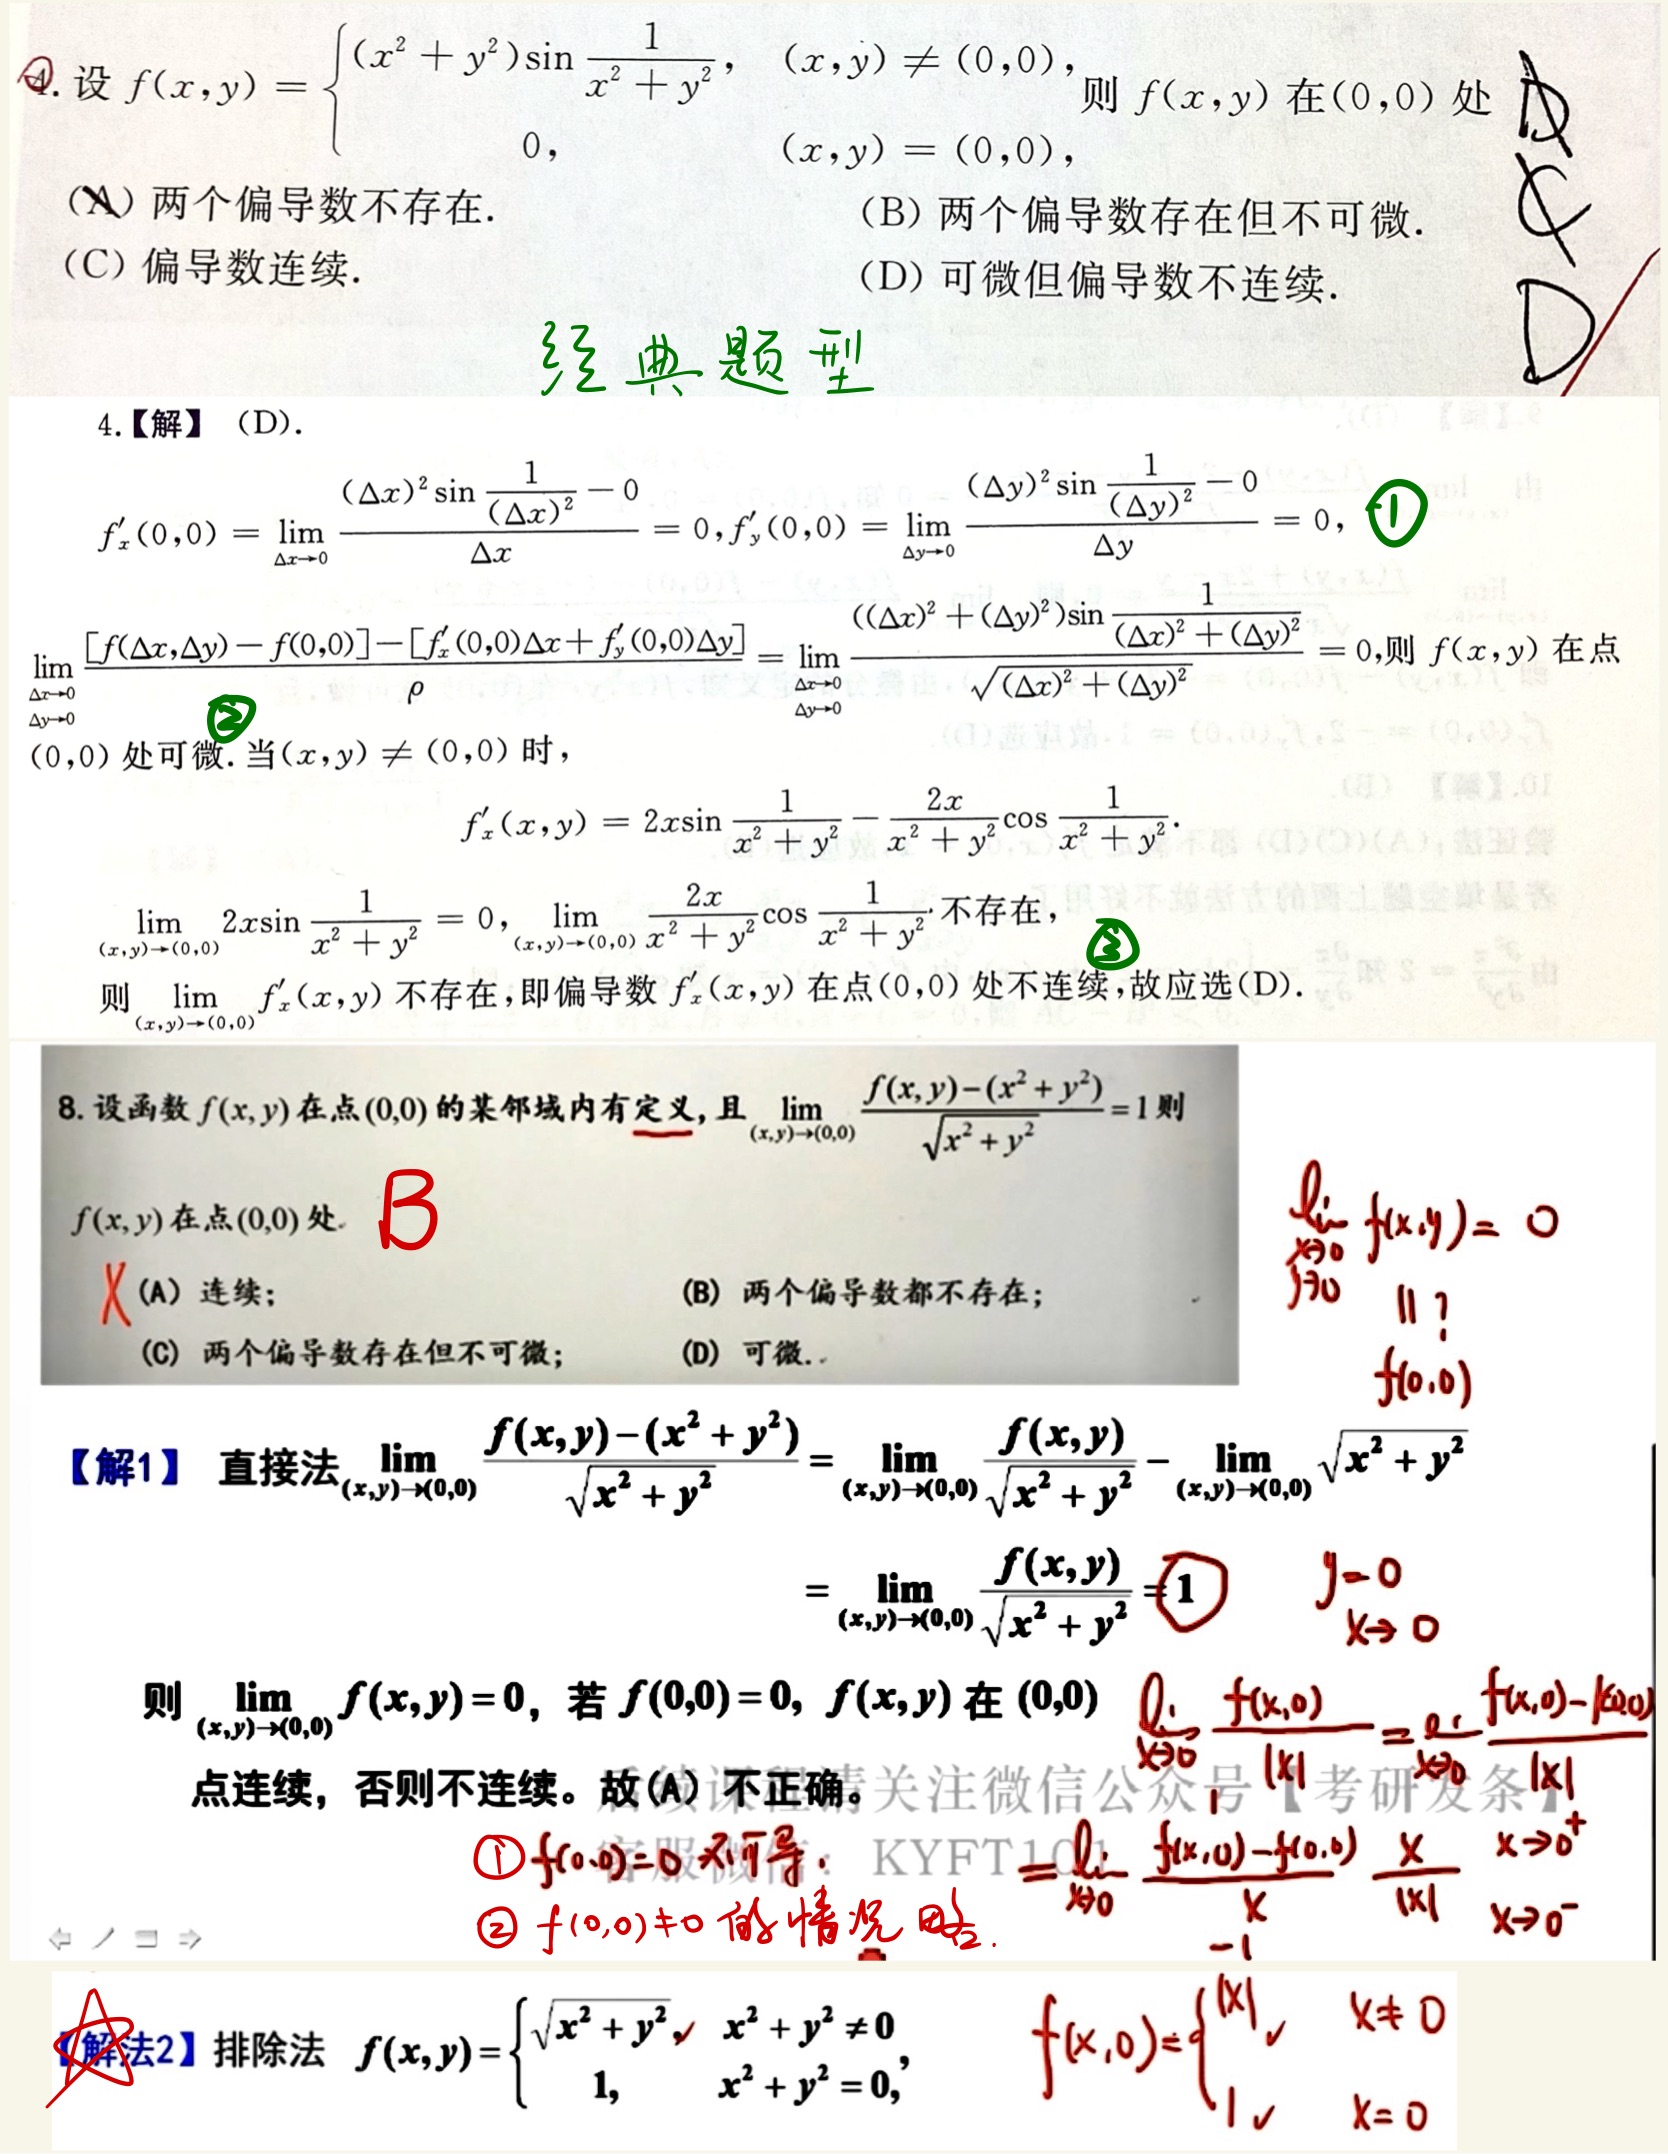 4. 设 f(x,y) = { (x² + y²)sin 1/(x² + y²), (x,y) ≠ (0,0), 则 f(x,y) 在(0,0) 处
0, (x,y) = (0,0),
D
C
D
(A) 两个偏导数不存在.
(B) 两个偏导数存在但不可微.
(C) 偏导数连续.
(D) 可微但偏导数不连续.
经典题型
4.【解】 (D).
f′x(0,0) = lim Δx→0 ((Δx)² sin 1/(Δx)² − 0)/Δx = 0, f′y(0,0) = lim Δy→0 ((Δy)² sin 1/(Δy)² − 0)/Δy = 0, ①
lim Δx→0 Δy→0 ([f(Δx,Δy) − f(0,0)] − [f′x(0,0)Δx + f′y(0,0)Δy])/ρ = lim Δx→0 Δy→0 (((Δx)² + (Δy)²)sin 1/((Δx)² + (Δy)²))/√((Δx)² + (Δy)²) = 0,则 f(x,y) 在点
②
(0,0) 处可微. 当(x,y) ≠ (0,0) 时,
f′x(x,y) = 2xsin 1/(x² + y²) − 2x/(x² + y²) cos 1/(x² + y²).
lim (x,y)→(0,0) 2xsin 1/(x² + y²) = 0, lim (x,y)→(0,0) 2x/(x² + y²) cos 1/(x² + y²) 不存在,
③
则 lim (x,y)→(0,0) f′x(x,y) 不存在,即偏导数 f′x(x,y) 在点(0,0) 处不连续,故应选(D).
8. 设函数 f(x,y) 在点(0,0) 的某邻域内有定义, 且 lim (x,y)→(0,0) (f(x,y)−(x²+y²))/√(x²+y²) = 1 则
f(x,y) 在点(0,0) 处.
B
(A) 连续;
(B) 两个偏导数都不存在;
(C) 两个偏导数存在但不可微;
(D) 可微..
lim x→0 y→0 f(x,y) = 0
|| ?
f(0,0)
【解1】 直接法 lim (x,y)→(0,0) (f(x,y)−(x²+y²))/√(x²+y²) = lim (x,y)→(0,0) f(x,y)/√(x²+y²) − lim (x,y)→(0,0) √(x²+y²)
= lim (x,y)→(0,0) f(x,y)/√(x²+y²) = 1
y=0
x→0
则 lim (x,y)→(0,0) f(x,y)=0, 若 f(0,0)=0, f(x,y) 在 (0,0)
点连续, 否则不连续。故(A) 不正确。
lim x→0 f(x,0)/|x| = lim x→0 (f(x,0)−f(0,0))/|x|
后续课程请关注微信公众号【考研发条】
客服微信: KYFT101
1
= lim x→0 (f(x,0)−f(0,0))/x x/|x| x→0⁺
−1
x→0⁻
① f(0,0)=0 不可导.
② f(0,0)≠0 的情况略.
【解法2】排除法 f(x,y)= { √(x²+y²), x²+y²≠0
1, x²+y²=0,
f(x,0)= { |x| x≠0
1 x=0